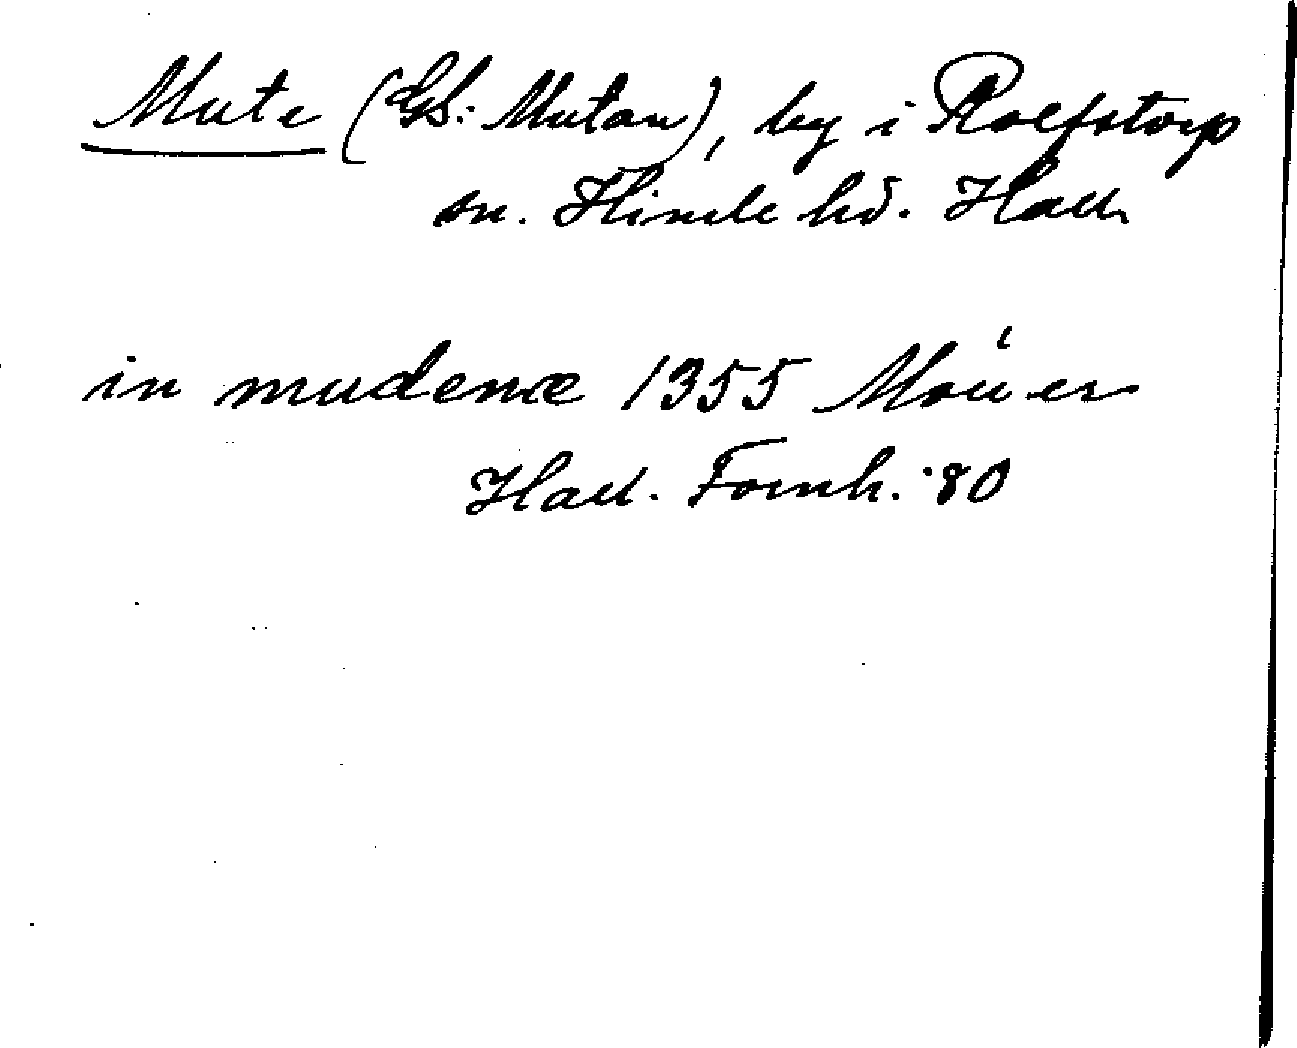 Mute (GS: Mutan), by i Rolfstorp
sn. Himle hd. Hall.
in mudene 1355 Mowér
Hall. Fornh. 80